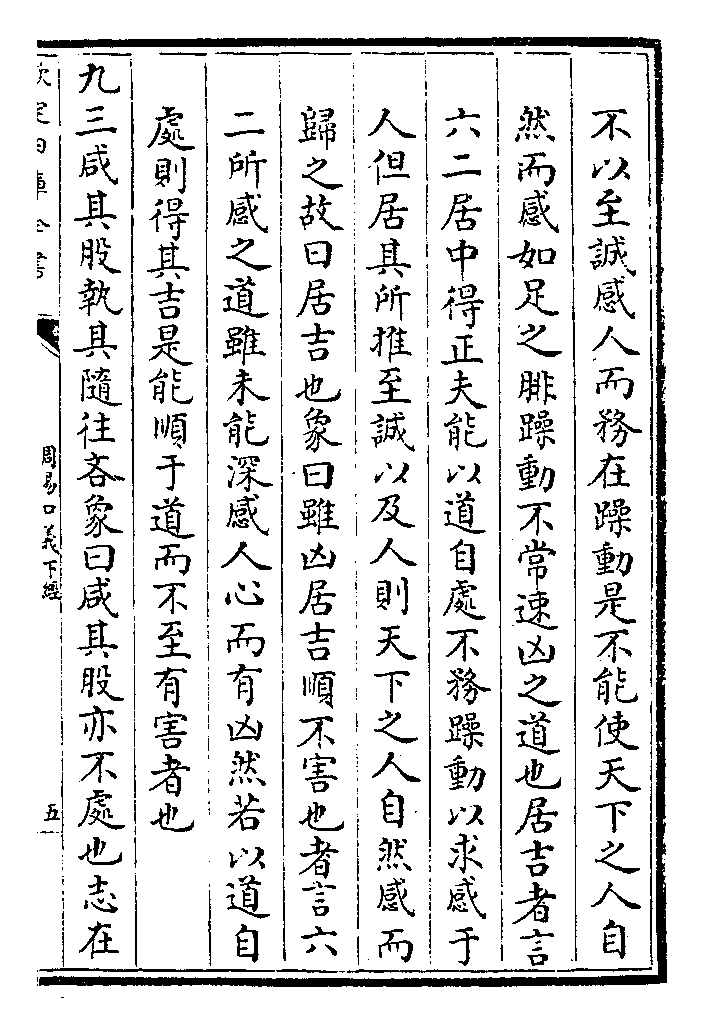 不以至誠感人而務在躁動是不能使天下之人自
然而感如足之腓躁動不常速凶之道也居吉者言
六二居中得正夫能以道自處不務躁動以求感于
人但居其所推至誠以及人則天下之人自然感而
歸之故曰居吉也象曰雖凶居吉順不害也者言六
二所感之道雖未能深感人心而有凶然若以道自
處則得其吉是能順于道而不至有害者也
九三咸其股執其隨往吝象曰咸其股亦不處也志在
欽定四庫全書
周易口義下經
五